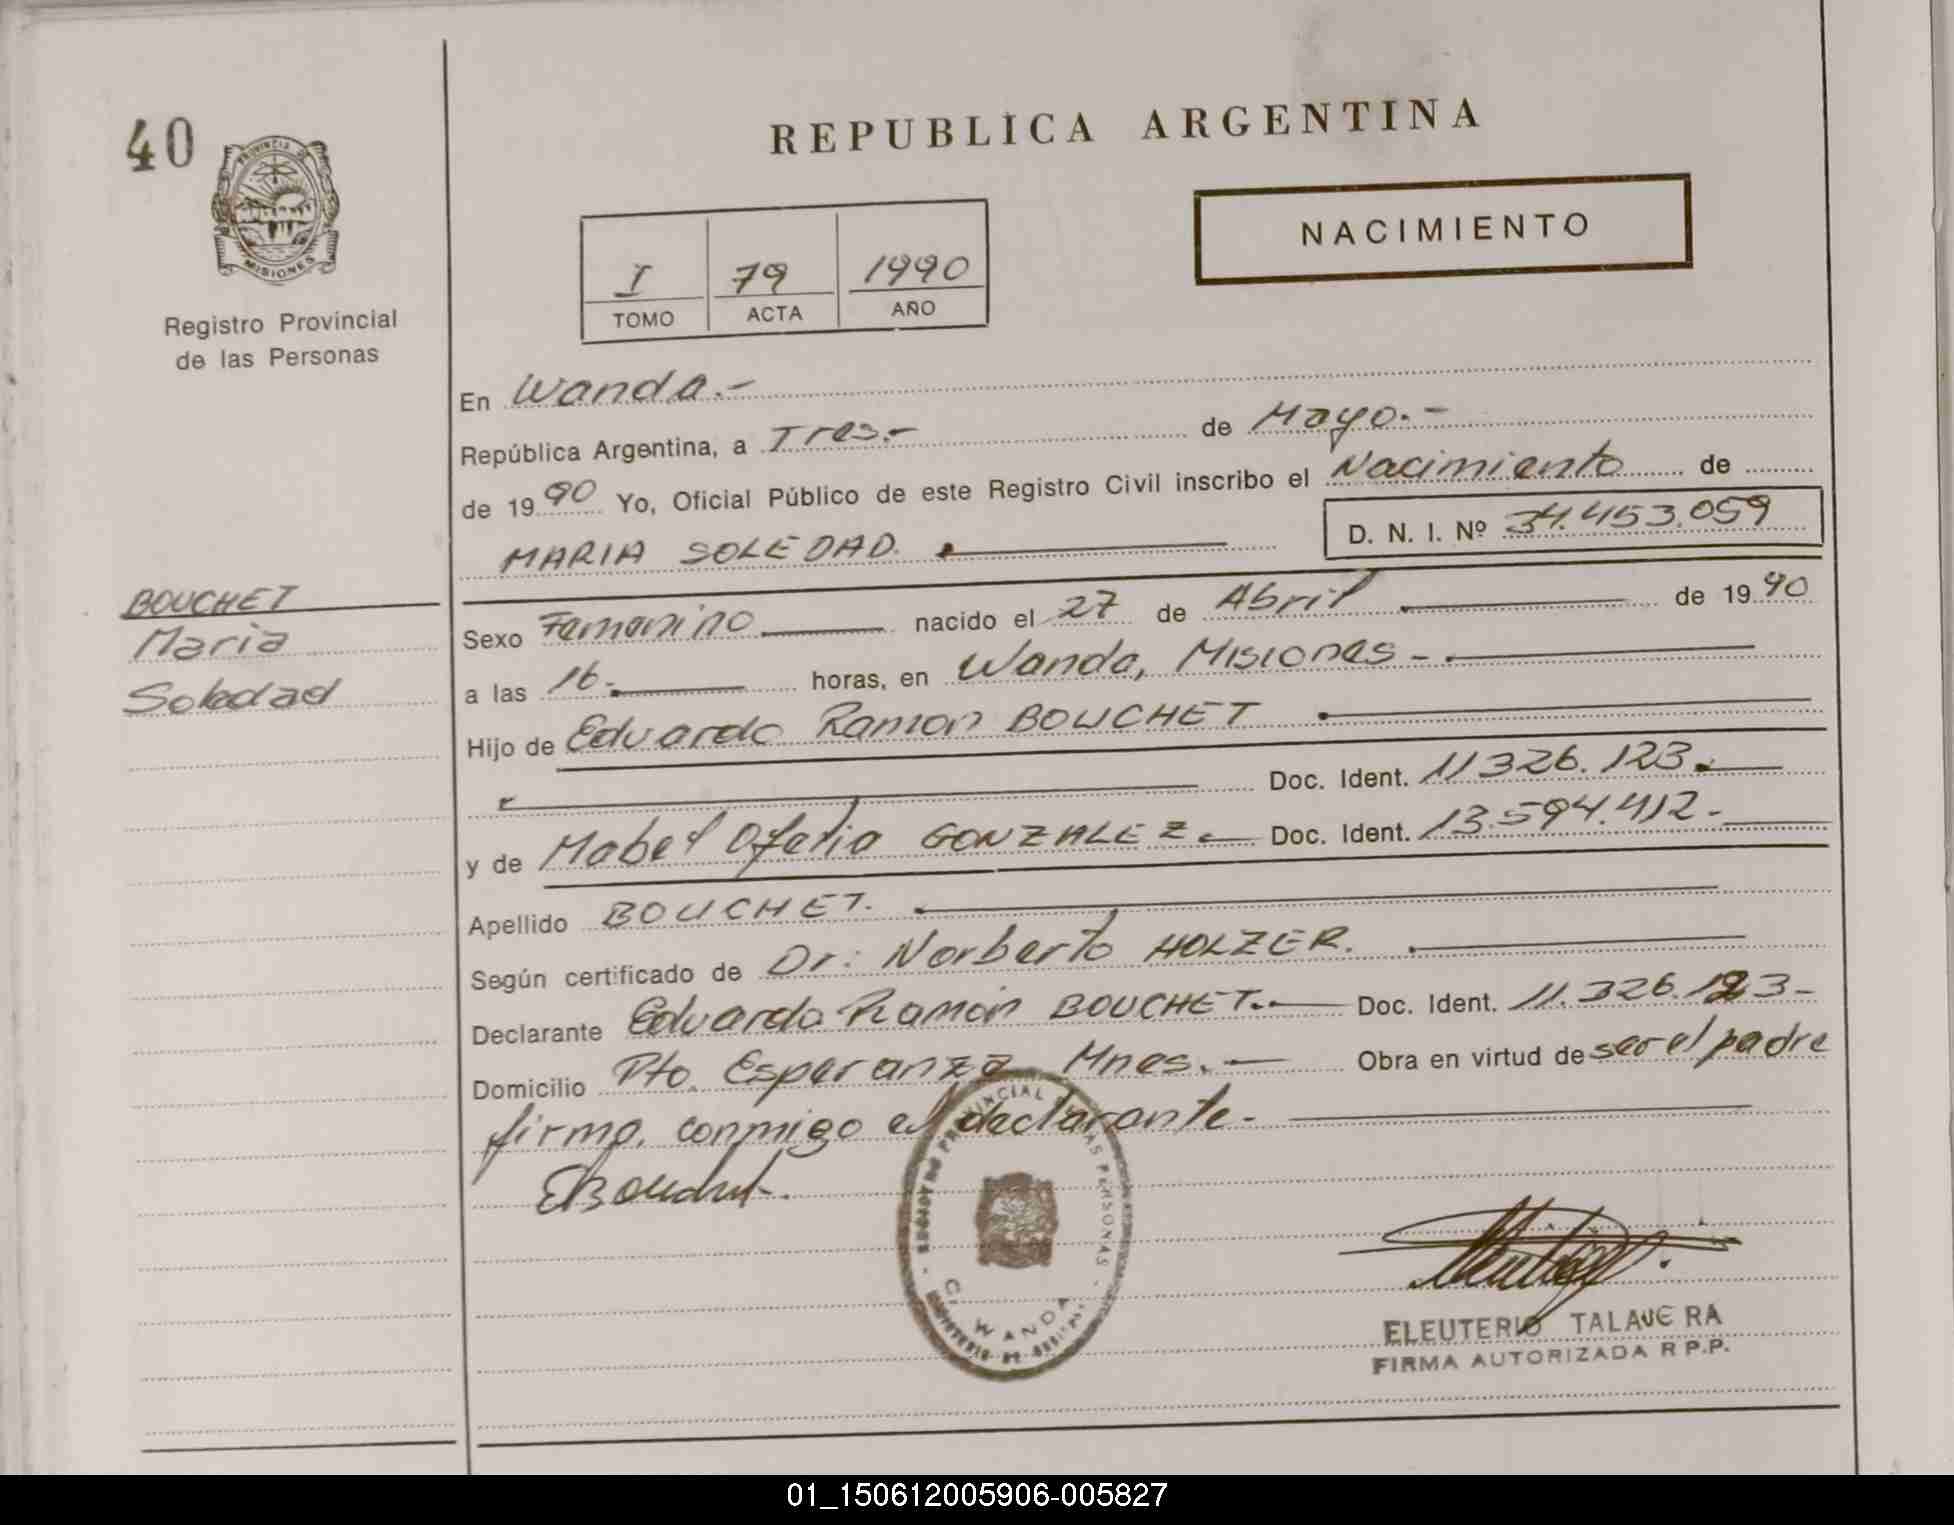 40
PROVINCIA DE
MISIONES
Registro Provincial
de las Personas
REPUBLICA ARGENTINA
NACIMIENTO
I 79 1990
TOMO ACTA AÑO
En Wanda.-
República Argentina, a Tres.- de Mayo.-
de 1990 Yo, Oficial Público de este Registro Civil inscribo el Nacimiento de
MARIA SOLEDAD. D. N. I. Nº 34.453.059
BOUCHET
Maria
Soledad
Sexo Femenino nacido el 27 de Abril de 1990
a las 16.- horas, en Wanda, Misiones -.
Hijo de Eduardo Ramon BOUCHET
Doc. Ident. 11326.123.
y de Mabel Ofelia GONZALEZ.- Doc. Ident. 13.594.412.-
Apellido BOUCHET.
Según certificado de Dr: Norberto HOLZER.
Declarante Eduardo Ramón BOUCHET.- Doc. Ident. 11.326.123-
Domicilio Pto. Esperanza Mnes.- Obra en virtud de ser el padre
firma, conmigo el declarante-
EBouchet.
REGISTRO PROVINCIAL DE LAS PERSONAS
WANDA
ELEUTERIO TALAVERA
FIRMA AUTORIZADA R P.P.
01_150612005906-005827